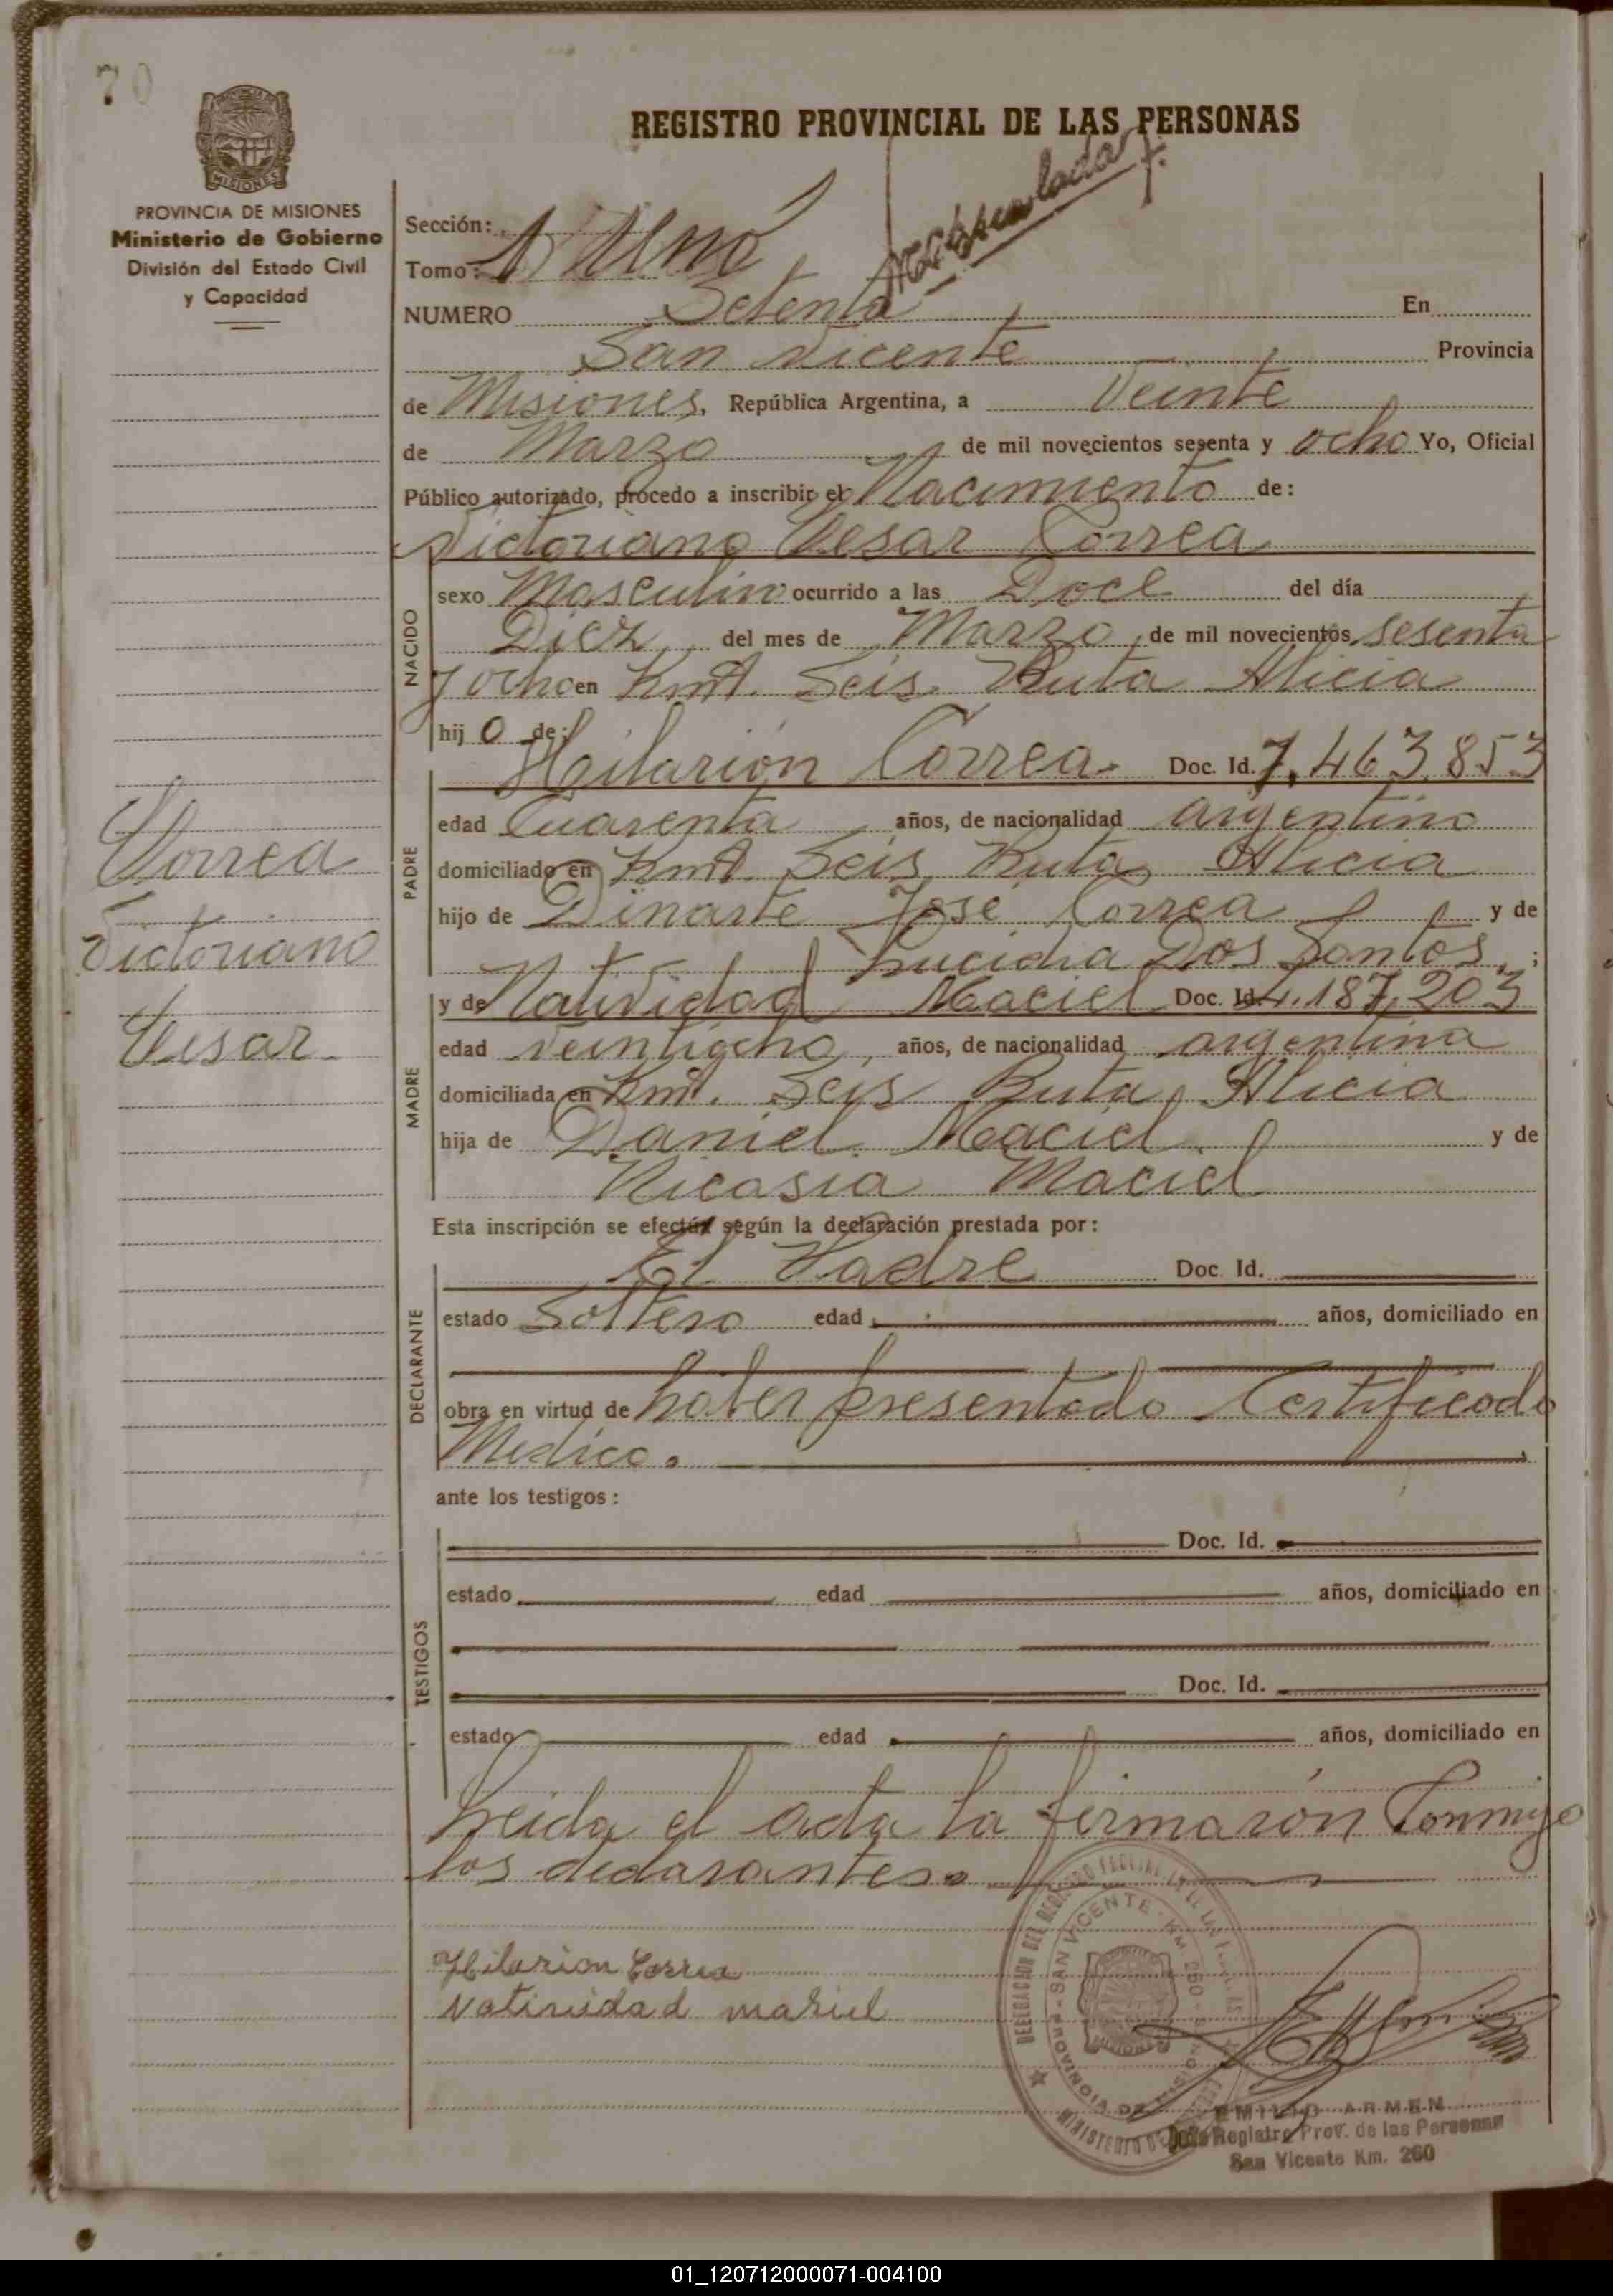 70
REGISTRO PROVINCIAL DE LAS PERSONAS
PROVINCIA DE MISIONES
Ministerio de Gobierno
División del Estado Civil
y Capacidad
MISIONES
Sección:
Tomo: 1 Uno
NUMERO Setenta En
San Vicente Provincia
de Misiones, República Argentina, a Veinte
de Marzo de mil novecientos sesenta y ocho Yo, Oficial
Público autorizado, procedo a inscribir el Nacimiento de:
Victoriano Cesar Correa
NACIDO
sexo Masculino ocurrido a las Doce del día
Diez del mes de Marzo de mil novecientos sesenta
y ocho en Kmt. Seis Ruta Alicia
hij o de:
Hilarión Correa Doc. Id. 7.463.853
PADRE
edad Cuarenta años, de nacionalidad argentino
domiciliado en Kmt. Seis Ruta Alicia
hijo de Dinarte José Correa y de
Dos Santos ;
y de Natividad Maciel Doc. Id. 4.187.203
MADRE
edad veintiocho, años, de nacionalidad argentina
domiciliada en Kmt. Seis Ruta Alicia
hija de Daniel Maciel y de
Nicasia Maciel
Esta inscripción se efectúa según la declaración prestada por:
El Padre Doc. Id.
DECLARANTE
estado Soltero edad años, domiciliado en
obra en virtud de haber presentado Certificado
Medico.
ante los testigos:
Doc. Id.
TESTIGOS
estado edad años, domiciliado en
Doc. Id.
estado edad años, domiciliado en
Leida el acta la firmarón Conmigo
los declarantes.
Correa
Victoriano
Cesar
Hilarion Correa
Natividad mariel
SAN VICENTE - KM. 260
PROVINCIA DE MISIONES
EMILIO ARMEN
Jefe Registro Prov. de las Personas
San Vicente Km. 260
01_120712000071-004100